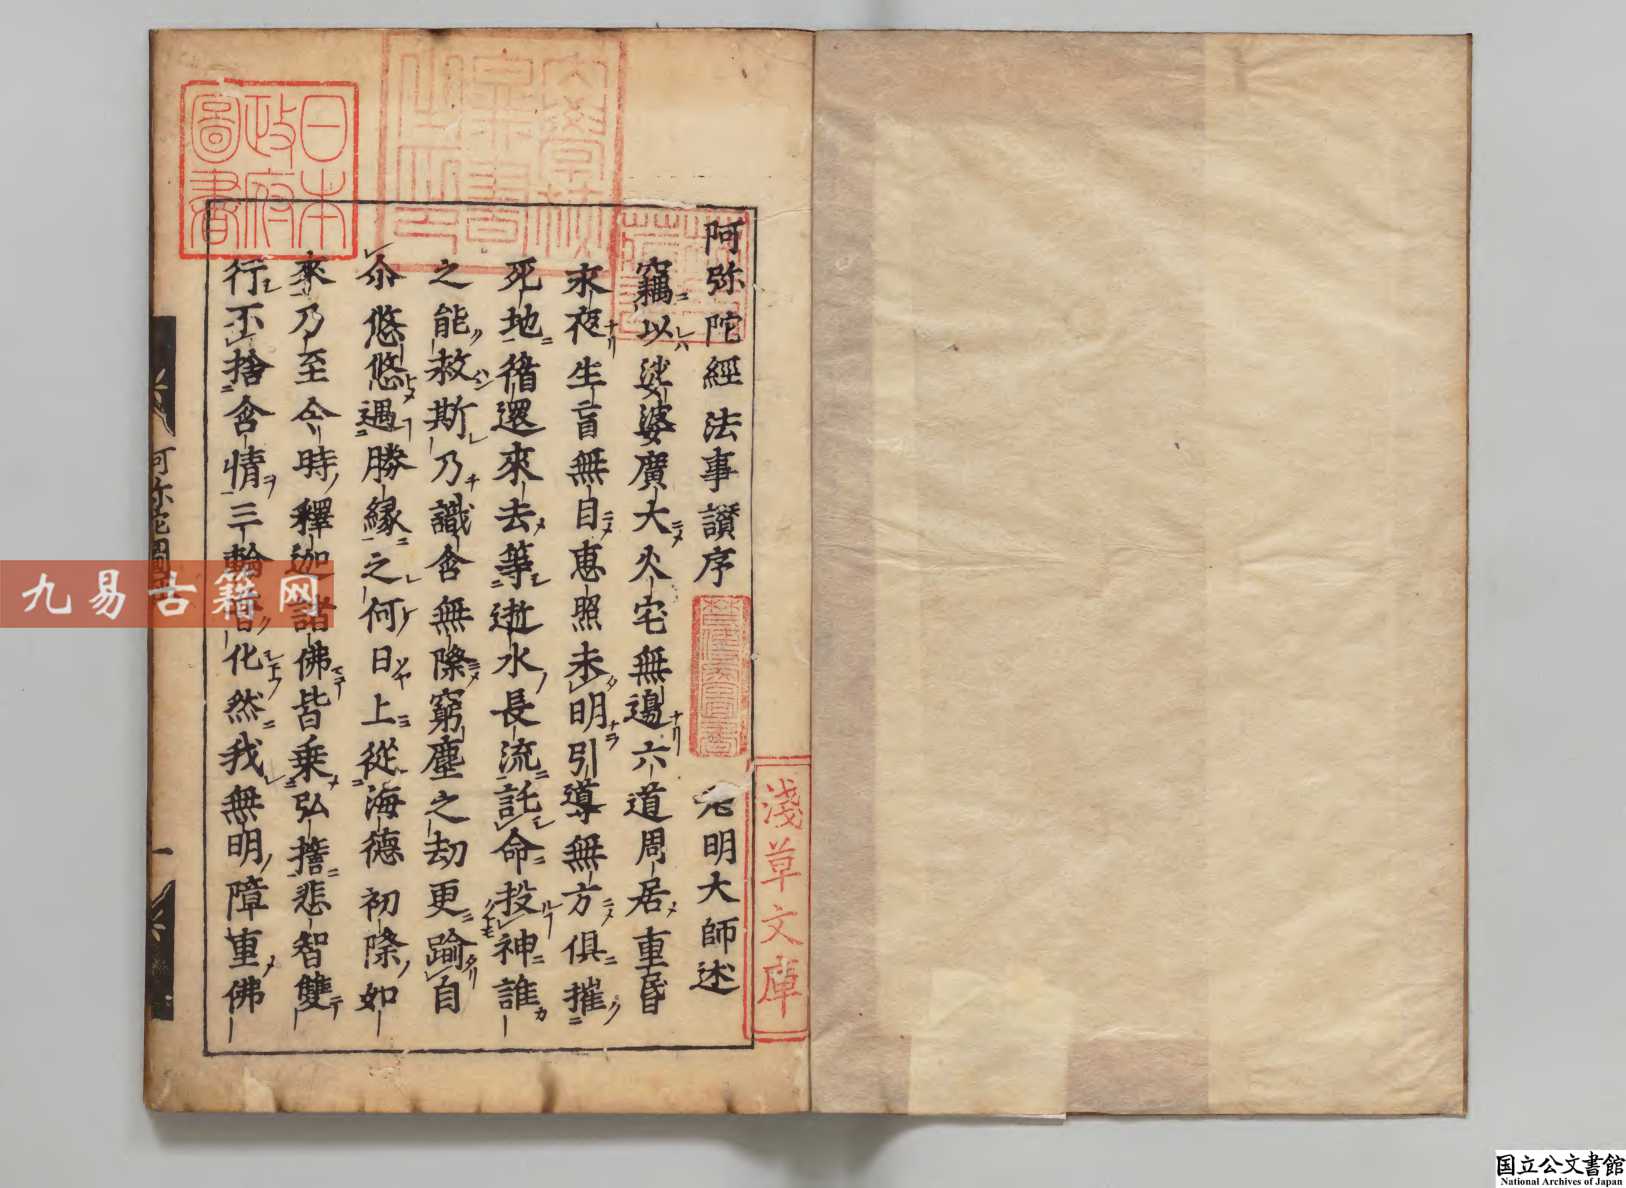 阿弥陀經法事讃序　光明大師述
竊以娑婆廣大火宅無邊六道周居重昏
永夜生盲無目惠照未明引導無方俱摧
死地循還來去等逝水長流託命投神誰
之能救斯乃識含無際窮塵之劫更踰自
尒悠悠遇勝縁之何日上從海德初際如
來乃至今時釋迦諸佛皆乗弘誓悲智雙
行不捨含情三輪普化然我無明障重佛
日本政府圖書
淺草文庫
九易古籍网
国立公文書館
National Archives of Japan